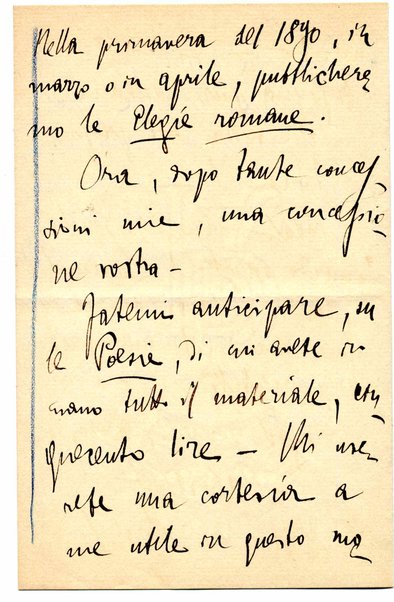 Nella primavera del 1890, in
marzo o in aprile, pubblichere
mo le Elegie romane.
Ora, dopo tante conces
sioni mie, una concessio
ne vostra –
Fatemi anticipare, su
le Poesie, di cui avete in
mano tutto il materiale,
quecento lire – Mi use
rete una cortesia a
me utile in questo mo